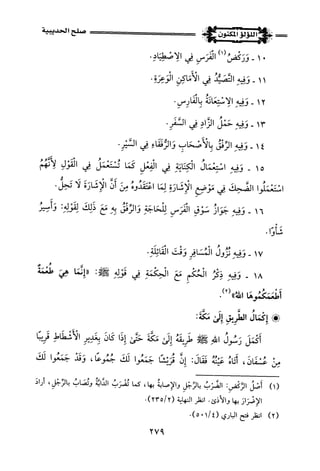 اللؤلؤ المكنون صلح الحديبية
١٠ - وَرَكْضُ(١) الْفَرَسِ فِي الِاصْطِيَادِ.
١١ - وَفِيهِ التَّصَيُّدُ فِي الْأَمَاكِنِ الْوَعِرَةِ.
١٢ - وَفِيهِ الِاسْتِعَانَةُ بِالْفَارِسِ.
١٣ - وَفِيهِ حَمْلُ الزَّادِ فِي السَّفَرِ.
١٤ - وَفِيهِ الرِّفْقُ بِالْأَصْحَابِ وَالرُّفَقَاءِ فِي السَّيْرِ.
١٥ - وَفِيهِ اسْتِعْمَالُ الْكِنَايَةِ فِي الْفِعْلِ كَمَا تُسْتَعْمَلُ فِي الْقَوْلِ لِأَنَّهُمُ
اسْتَعْمَلُوا الضَّحِكَ فِي مَوْضِعِ الْإِشَارَةِ لِمَا اعْتَقَدُوهُ مِنَ أَنَّ الْإِشَارَةَ لَا تَحِلُّ.
١٦ - وَفِيهِ جَوَازُ سَوْقِ الْفَرَسِ لِلْحَاجَةِ وَالرِّفْقُ بِهِ مَعَ ذَلِكَ لِقَوْلِهِ: وَأَسِيرُ
شَأْوًا.
١٧ - وَفِيهِ نُزُولُ الْمُسَافِرِ وَقْتَ الْقَائِلَةِ.
١٨ - وَفِيهِ ذِكْرُ الْحُكْمِ مَعَ الْحِكْمَةِ فِي قَوْلِهِ ﷺ: «إِنَّمَا هِيَ طُعْمَةٌ
أَطْعَمَكُمُوهَا اللهُ»(٢).
◉ إِكْمَالُ الطَّرِيقِ إِلَى مَكَّةَ:
أَكْمَلَ رَسُولُ اللهِ ﷺ طَرِيقَهُ إِلَى مَكَّةَ حَتَّى إِذَا كَانَ بِغَدِيرِ الْأَشْطَاطِ قَرِيبًا
مِنْ عُسْفَانَ، أَتَاهُ عَيْنُهُ فَقَالَ: إِنَّ قُرَيْشًا جَمَعُوا لَكَ جُمُوعًا، وَقَدْ جَمَعُوا لَكَ
(١) أَصْلُ الرَّكْضِ: الضَّرْبُ بالرِّجْلِ والإصابةُ بها، كما تُضْرَبُ الدَّابَّةُ وتُصَابُ بالرِّجْلِ، أرادَ
الإضْرَارَ بها والأذى. انظر النهاية (٢/ ٢٣٥).
(٢) انظر فتح الباري (٤/ ٥٠١).
٢٧٩